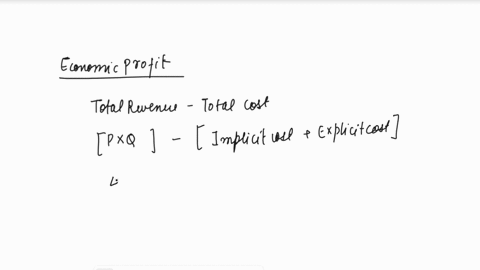 Economic profit
Total Revenue - Total cost
[P×Q] - [Implicit cost + Explicit cost]